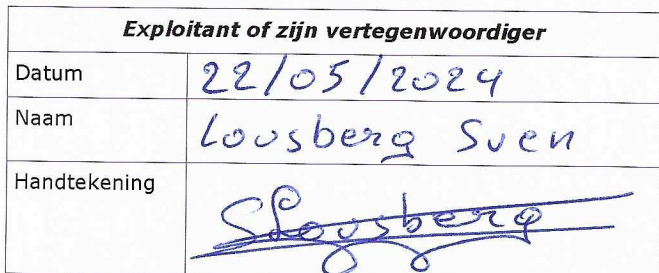 Exploitant of zijn vertegenwoordiger
Datum 22/05/2024
Naam Loosberg Sven
Handtekening SLoosberg